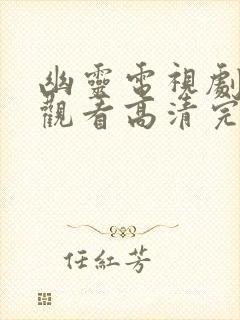 幽靈電視劇
觀看高清完
任紅芳